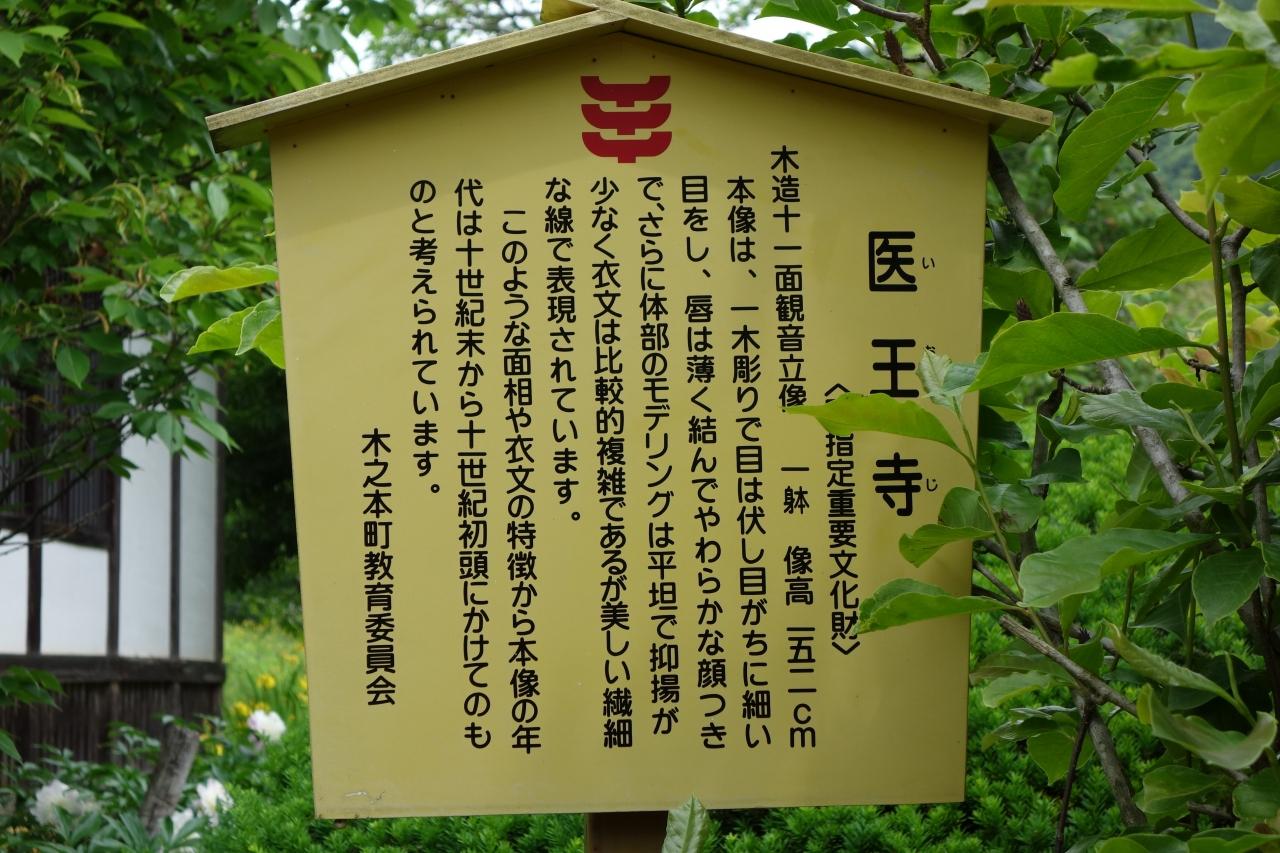 医王寺
い お じ
〈指定重要文化財〉
木造十一面観音立像　一躰　像高　一五二ｃｍ
本像は、一木彫りで目は伏し目がちに細い
目をし、唇は薄く結んでやわらかな顔つき
で、さらに体部のモデリングは平坦で抑揚が
少なく衣文は比較的複雑であるが美しい繊細
な線で表現されています。
このような面相や衣文の特徴から本像の年
代は十世紀末から十一世紀初頭にかけてのも
のと考えられています。
木之本町教育委員会